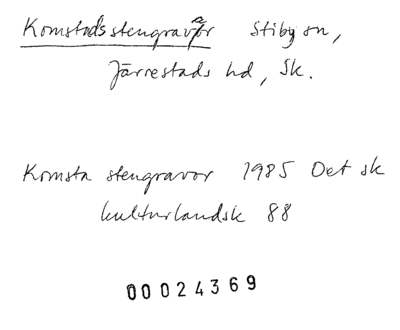 Komstads stengravar Stiby sn,
Järrestads hd, Sk.
Komsta stengravor 1985 Det sk
kulturlandsk 88
00024369